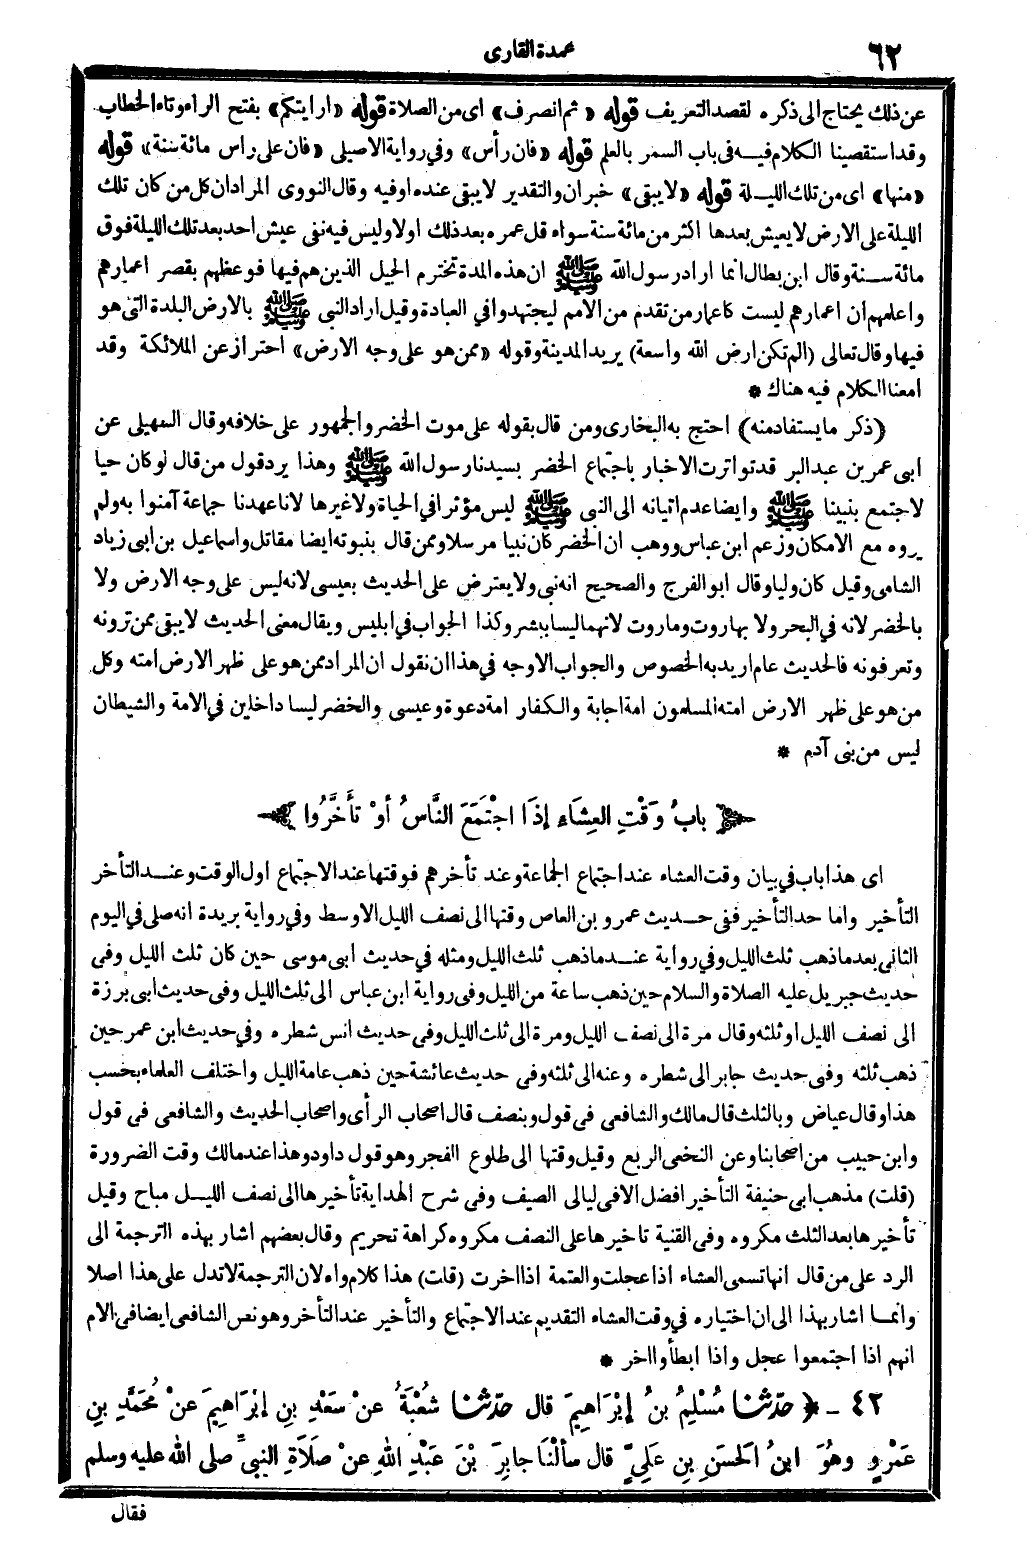 ٦٢
عمدة القارى
عن ذلك يحتاج الى ذكره لقصد التعريف قوله «ثم انصرف» اى من الصلاة قوله «ارايتكم» بفتح الراء وتاء الخطاب
وقد استقصينا الكلام فيه فى باب السمر بالعلم قوله «فان رأس» وفي رواية الاصيلى «فان على راس مائة سنة» قوله
«منها» اى من تلك الليلة قوله «لا يبقى» خبر ان والتقدير لا يبقى عنده او فيه وقال النووى المراد ان كل من كان تلك
الليلة على الارض لا يعيش بعدها اكثر من مائة سنة سواء قل عمره بعد ذلك اولا وليس فيه نفى عيش احد بعد تلك الليلة فوق
مائة سنة وقال ابن بطال انما اراد رسول الله ﷺ ان هذه المدة تخترم الجيل الذين هم فيها فوعظهم بقصر اعمارهم
واعلمهم ان اعمارهم ليست كاعمار من تقدم من الامم ليجتهدوا في العبادة وقيل اراد النبى ﷺ بالارض البلدة التى هو
فيها وقال تعالى (الم تكن ارض الله واسعة) يريد المدينة وقوله «ممن هو على وجه الارض» احتراز عن الملائكة وقد
امعنا الكلام فيه هناك *
(ذكر ما يستفاد منه) احتج به البخارى ومن قال بقوله على موت الخضر والجمهور على خلافه وقال السهيلى عن
ابى عمر بن عبد البر قد تواترت الاخبار باجتماع الخضر بسيدنا رسول الله ﷺ وهذا يرد قول من قال لو كان حيا
لاجتمع بنبينا ﷺ وايضا عدم اتيانه الى النبى ﷺ ليس مؤثرا في الحياة ولا غيرها لانا عهدنا جماعة آمنوا به ولم
يروه مع الامكان وزعم ابن عباس ووهب ان الخضر كان نبيا مرسلا وممن قال بنبوته ايضا مقاتل واسماعيل بن ابى زياد
الشامى وقيل كان وليا وقال ابو الفرج والصحيح انه نبى ولا يعترض على الحديث بعيسى لانه ليس على وجه الارض ولا
بالخضر لانه في البحر ولا بهاروت وماروت لانهما ليسا ببشر وكذا الجواب في ابليس ويقال معنى الحديث لا يبقى ممن ترونه
وتعرفونه فالحديث عام اريد به الخصوص والجواب الاوجه في هذا ان نقول ان المراد ممن هو على ظهر الارض امته وكل
من هو على ظهر الارض امته المسلمون امة اجابة والكفار امة دعوة وعيسى والخضر ليسا داخلين في الامة والشيطان
ليس من بنى آدم *
﴿ بابُ وَقْتِ العِشَاءِ إِذَا اجْتَمَعَ النَّاسُ أَوْ تَأَخَّرُوا ﴾
اى هذا باب في بيان وقت العشاء عند اجتماع الجماعة وعند تأخرهم فوقتها عند الاجتماع اول الوقت وعند التأخر
التأخير واما حد التأخير فنى حديث عمرو بن العاص وقتها الى نصف الليل الاوسط وفي رواية بريدة انه صلى في اليوم
الثانى بعد ما ذهب ثلث الليل وفي رواية عند ما ذهب ثلث الليل ومثله في حديث ابى موسى حين كان ثلث الليل وفى
حديث جبريل عليه الصلاة والسلام حين ذهب ساعة من الليل وفى رواية ابن عباس الى ثلث الليل وفى حديث ابى برزة
الى نصف الليل او ثلثه وقال مرة الى نصف الليل ومرة الى ثلث الليل وفى حديث انس شطره وفي حديث ابن عمر حين
ذهب ثلثه وفى حديث جابر الى شطره وعنه الى ثلثه وفى حديث عائشة حين ذهب عامة الليل واختلف العلماء بحسب
هذا وقال عياض وبالثلث قال مالك والشافعى فى قول وبنصف قال اصحاب الرأى واصحاب الحديث والشافعى فى قول
وابن حبيب من اصحابنا وعن النخعى الربع وقيل وقتها الى طلوع الفجر وهو قول داود وهذا عند مالك وقت الضرورة
(قلت) مذهب ابى حنيفة التأخير افضل الا فى ليالى الصيف وفى شرح الهداية تأخيرها الى نصف الليل مباح وقيل
تأخيرها بعد الثلث مكروه وفى القنية تاخيرها على النصف مكروه كراهة تحريم وقال بعضهم اشار بهذه الترجمة الى
الرد على من قال انها تسمى العشاء اذا عجلت والعتمة اذا اخرت (قلت) هذا كلام واه لان الترجمة لا تدل على هذا اصلا
وانما اشار بهذا الى ان اختياره في وقت العشاء التقديم عند الاجتماع والتأخير عند التأخر وهو نص الشافعى ايضا فى الام
انهم اذا اجتمعوا عجل واذا ابطأوا اخر *
٤٢ - ﴿ حدّثنا مُسْلِمُ بنُ إِبْرَاهِيمَ قال حدّثنا شُعْبَةُ عنْ سَعْدِ بنِ إِبْرَاهِيمَ عَنْ مُحَمَّدِ بنِ
عَمْرٍو وهُوَ ابنُ الحَسَنِ بنِ عَلِيٍّ قال سألْنَا جابِرَ بْنَ عَبْدِ اللهِ عنْ صَلاَةِ النبيِّ صلى الله عليه وسلم
فقال